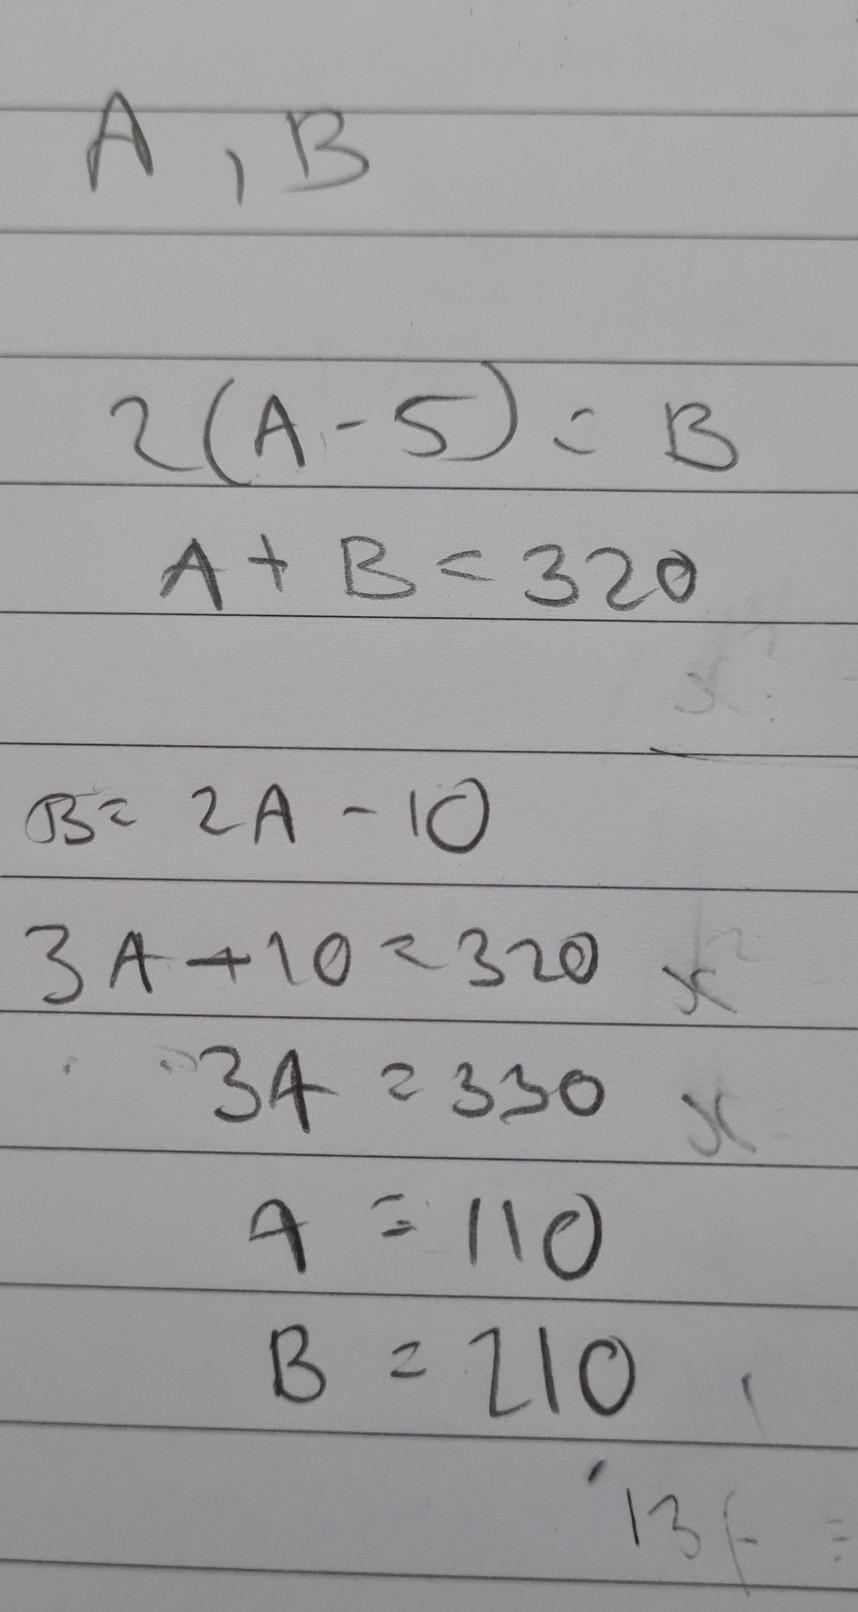 A , B
2(A - 5) = B
A + B = 320
B = 2A - 10
3A + 10 = 320
3A = 330
A = 110
B = 210